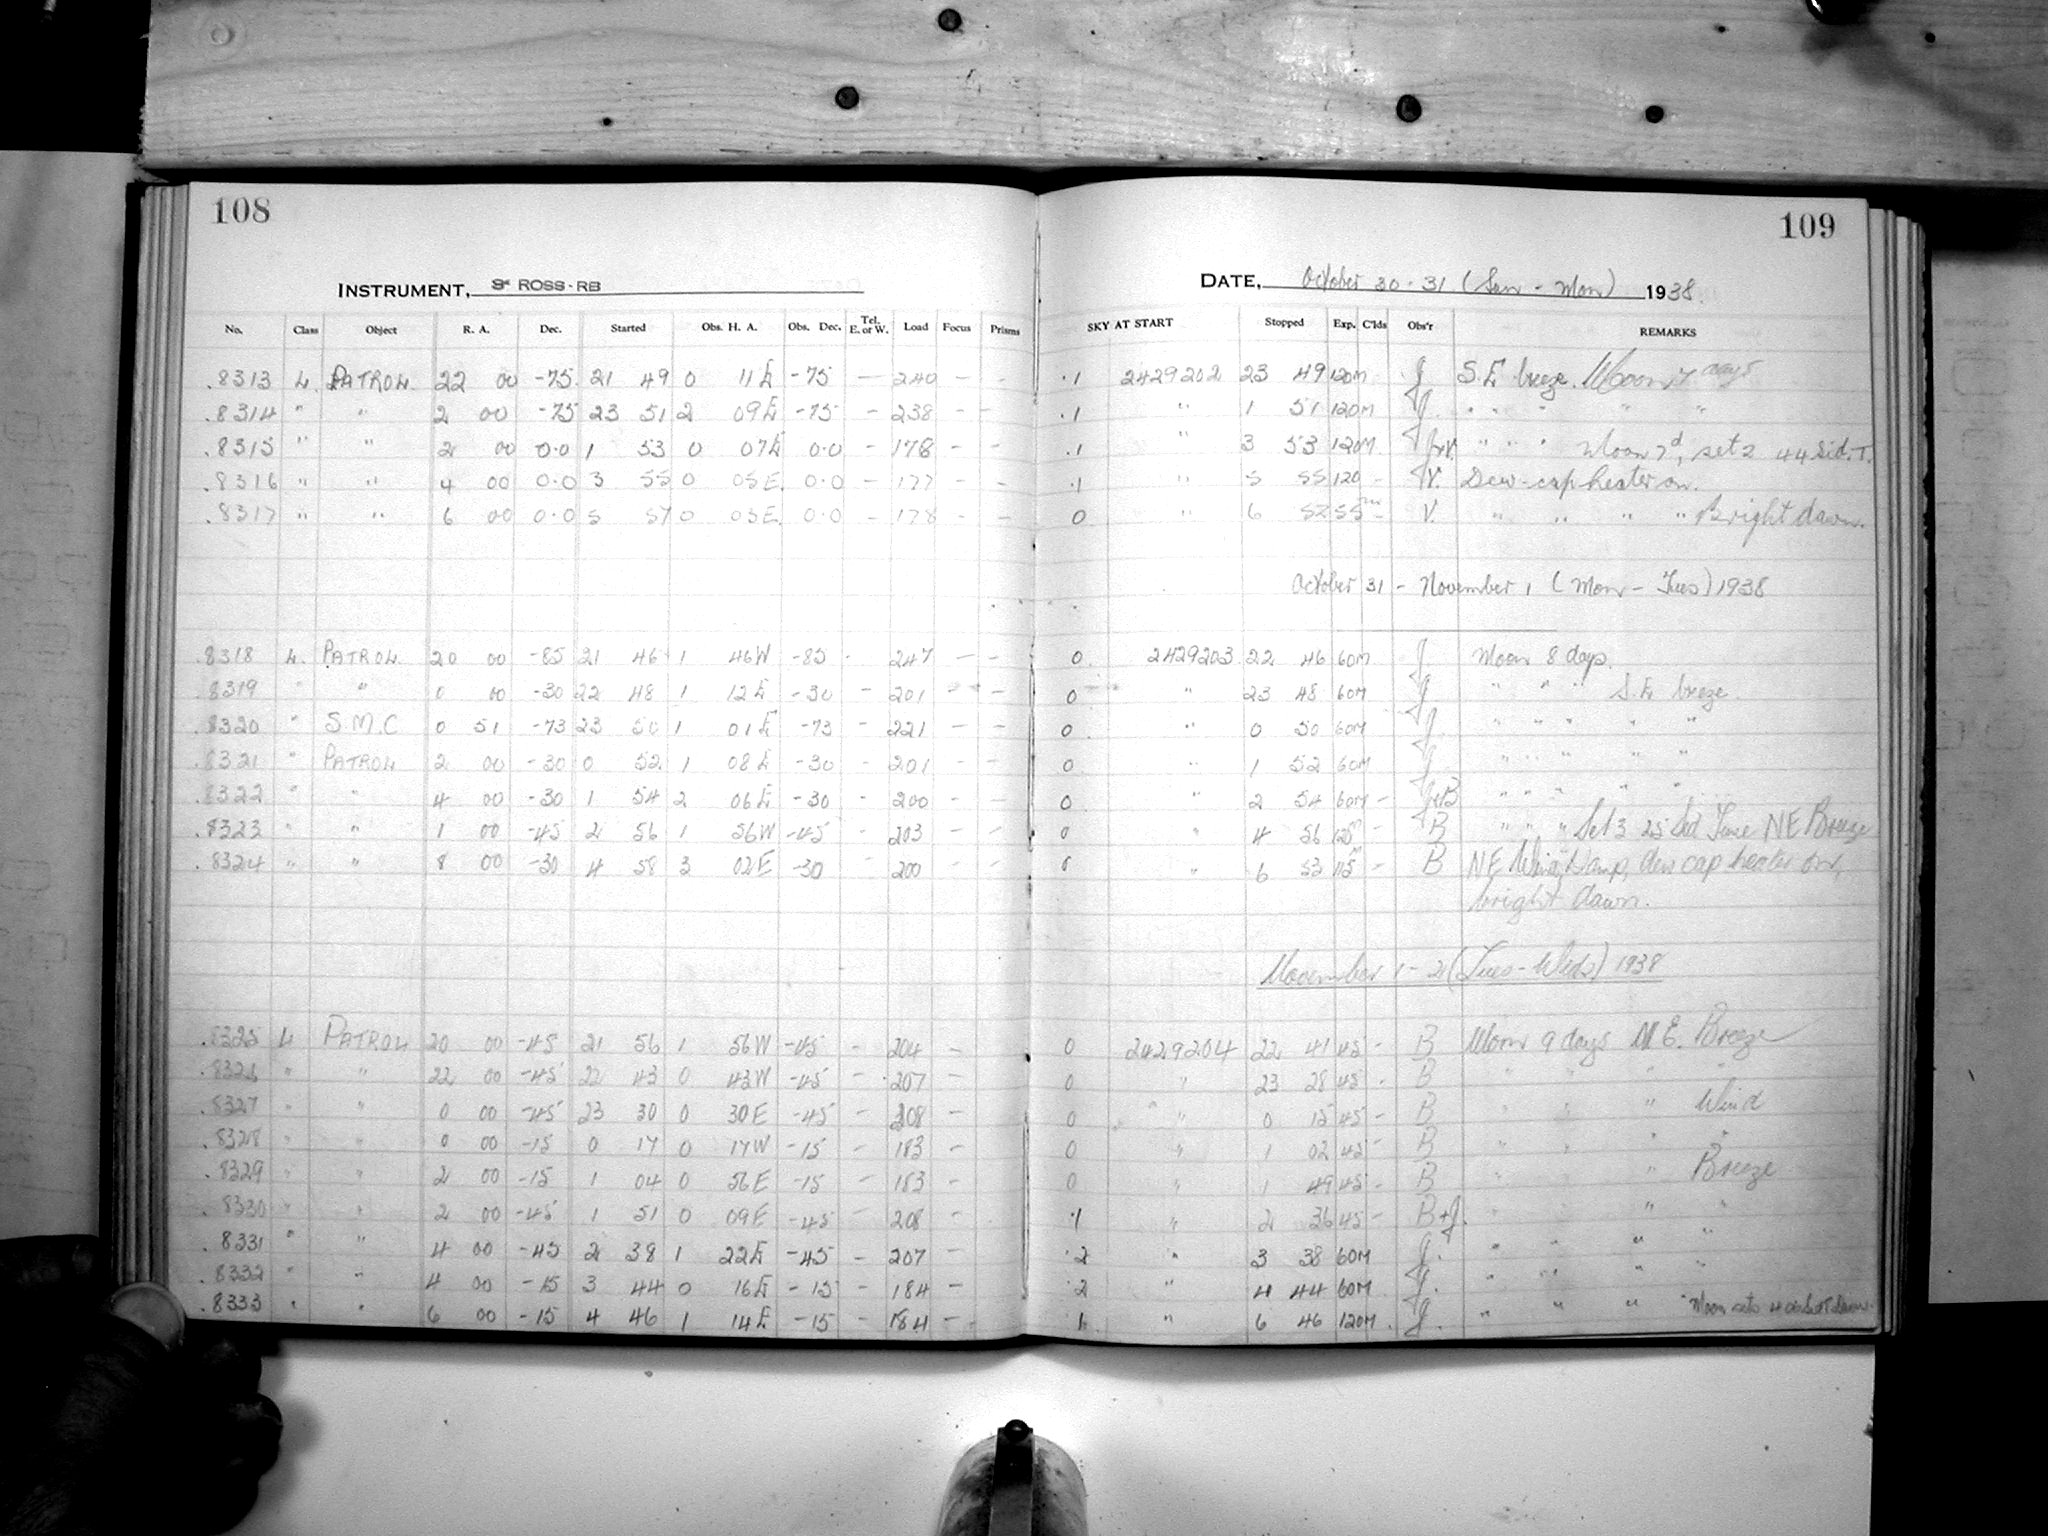 108
INSTRUMENT, 3" ROSS-RB
No. Class Object R. A. Dec. Started Obs. H. A. Obs. Dec. Tel. E. or W. Load Focus Prisms
.8313 L. PATROL 22 00 -75. 21 49 0 11E -75 — 240 - -
.8314 " " 2 00 -75 23 51 2 09E -75 - 238 - -
.8315 " " 2 00 0.0 1 53 0 07E 0.0 - 178 - -
.8316 " " 4 00 0.0 3 55 0 05E 0.0 - 177 - -
.8317 " " 6 00 0.0 5 57 0 03E 0.0 - 178 - -
.8318 L. PATROL 20 00 -85 21 46 1 46W -85 - 247 - -
.8319 " " 0 00 -30 22 48 1 12E -30 - 201 - -
.8320 " S.M.C 0 51 -73 23 50 1 01E -73 - 221 - -
.8321 " PATROL 2 00 -30 0 52 1 08E -30 - 201 - -
.8322 " " 4 00 -30 1 54 2 06E -30 - 200 - -
.8323 " " 1 00 -45 2 56 1 56W -45 - 203 - -
.8324 " " 8 00 -30 4 58 3 02E -30 - 200 - -
.8325 L PATROL 20 00 -45 21 56 1 56W -45 - 204 -
.8326 " " 22 00 -45 22 43 0 43W -45 - 207 -
.8327 " " 0 00 -45 23 30 0 30E -45 - 208 -
.8328 " " 0 00 -15 0 17 0 17W -15 - 183 -
.8329 " " 2 00 -15 1 04 0 56E -15 - 183 -
.8330 " " 2 00 -45 1 51 0 09E -45 - 208 -
.8331 " " 4 00 -45 2 38 1 22E -45 - 207 -
.8332 " " 4 00 -15 3 44 0 16E -15 - 184 -
.8333 " " 6 00 -15 4 46 1 14E -15 - 184 -
109
DATE, October 30-31 (Sun - Mon) 1938.
SKY AT START Stopped Exp. C'lds Obs'r REMARKS
.1 2429202 23 49 120M J S.E breeze. Moon 7 days
.1 " 1 51 120M J. " " " " "
.1 " 3 53 120M J+V. " " " Moon 7d, set 2 44 Sid. T.
.1 " 5 55 120 - V. Dew-cap heater on.
0 " 6 52 55m - V. " " " " Bright dawn.
October 31 - November 1 (Mon - Tues) 1938
0. 2429203 22 46 60M J. Moon 8 days.
0 " 23 48 60M J " " " S.E breeze.
0. " 0 50 60M J. " " " " "
0. " 1 52 60M J " " " " "
0. " 2 54 60M - J+B " " " " "
0 " 4 56 120m - B " " " Set 3 25 Sid Time NE Breeze
0 " 6 53 115m - B NE Wind, Damp, dew cap heater on,
bright dawn.
November 1-2 (Tues-Weds) 1938
0 2429204 22 41 45 - B Moon 9 days N.E. Breeze
0 " 23 28 45 - B " " " "
0 " 0 15 45 - B " " " Wind
0 " 1 02 45 - B " " " "
0 " 1 49 45 - B " " " Breeze
.1 " 2 36 45 - B+J. " " " "
.2 " 3 38 60M J. " " " "
.2 " 4 44 60M J. " " " "
1. " 6 46 120M. J. " " " Moon sets 4